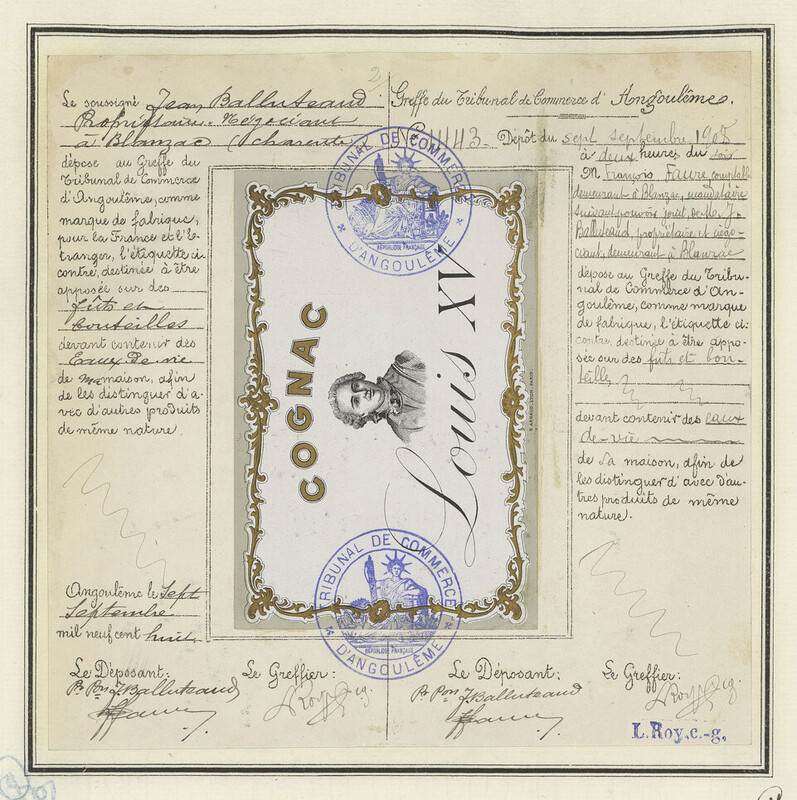 2
Le soussigné Jean Balluteaud
Propriétaire-Négociant
à Blanzac (Charente)
dépose au Greffe du
Tribunal de Commerce
d'Angoulême, comme
marque de fabrique,
pour la France et l'E-
tranger, l'étiquette ci-
contre, destinée à être
apposée sur des
fûts et
bouteilles
devant contenir des
Eaux-de-vie
de ma maison, afin
de les distinguer d'a-
vec d'autres produits
de même nature
Angoulême le Sept
Septembre
mil neuf cent huit
Le Déposant:
P. Pon J Balluteaud
Le Greffier:
Greffe du Tribunal de Commerce d'Angoulême.
N° 4443 Dépôt du sept septembre 1908
à deux heures du soir
M François Faure, comptable
demeurant à Blanzac, mandataire
suivant pouvoir joint, de M. J.
Balluteaud, propriétaire et négo-
ciant, demeurant à Blanzac
dépose au Greffe du Tribu-
nal de Commerce d'An-
goulême, comme marque
de fabrique, l'étiquette ci-
contre, destinée à être appo-
sée sur des fûts et bou-
teilles
devant contenir des eaux-
de-vie
de sa maison, afin de
les distinguer d'avec d'au-
tres produits de même
nature.
Le Déposant:
P. Pon J Balluteaud
Le Greffier:
L. Roy, c.-g.
TRIBUNAL DE COMMERCE
RÉPUBLIQUE FRANÇAISE
D'ANGOULÊME
COGNAC
Louis XV
TRIBUNAL DE COMMERCE
RÉPUBLIQUE FRANÇAISE
D'ANGOULÊME